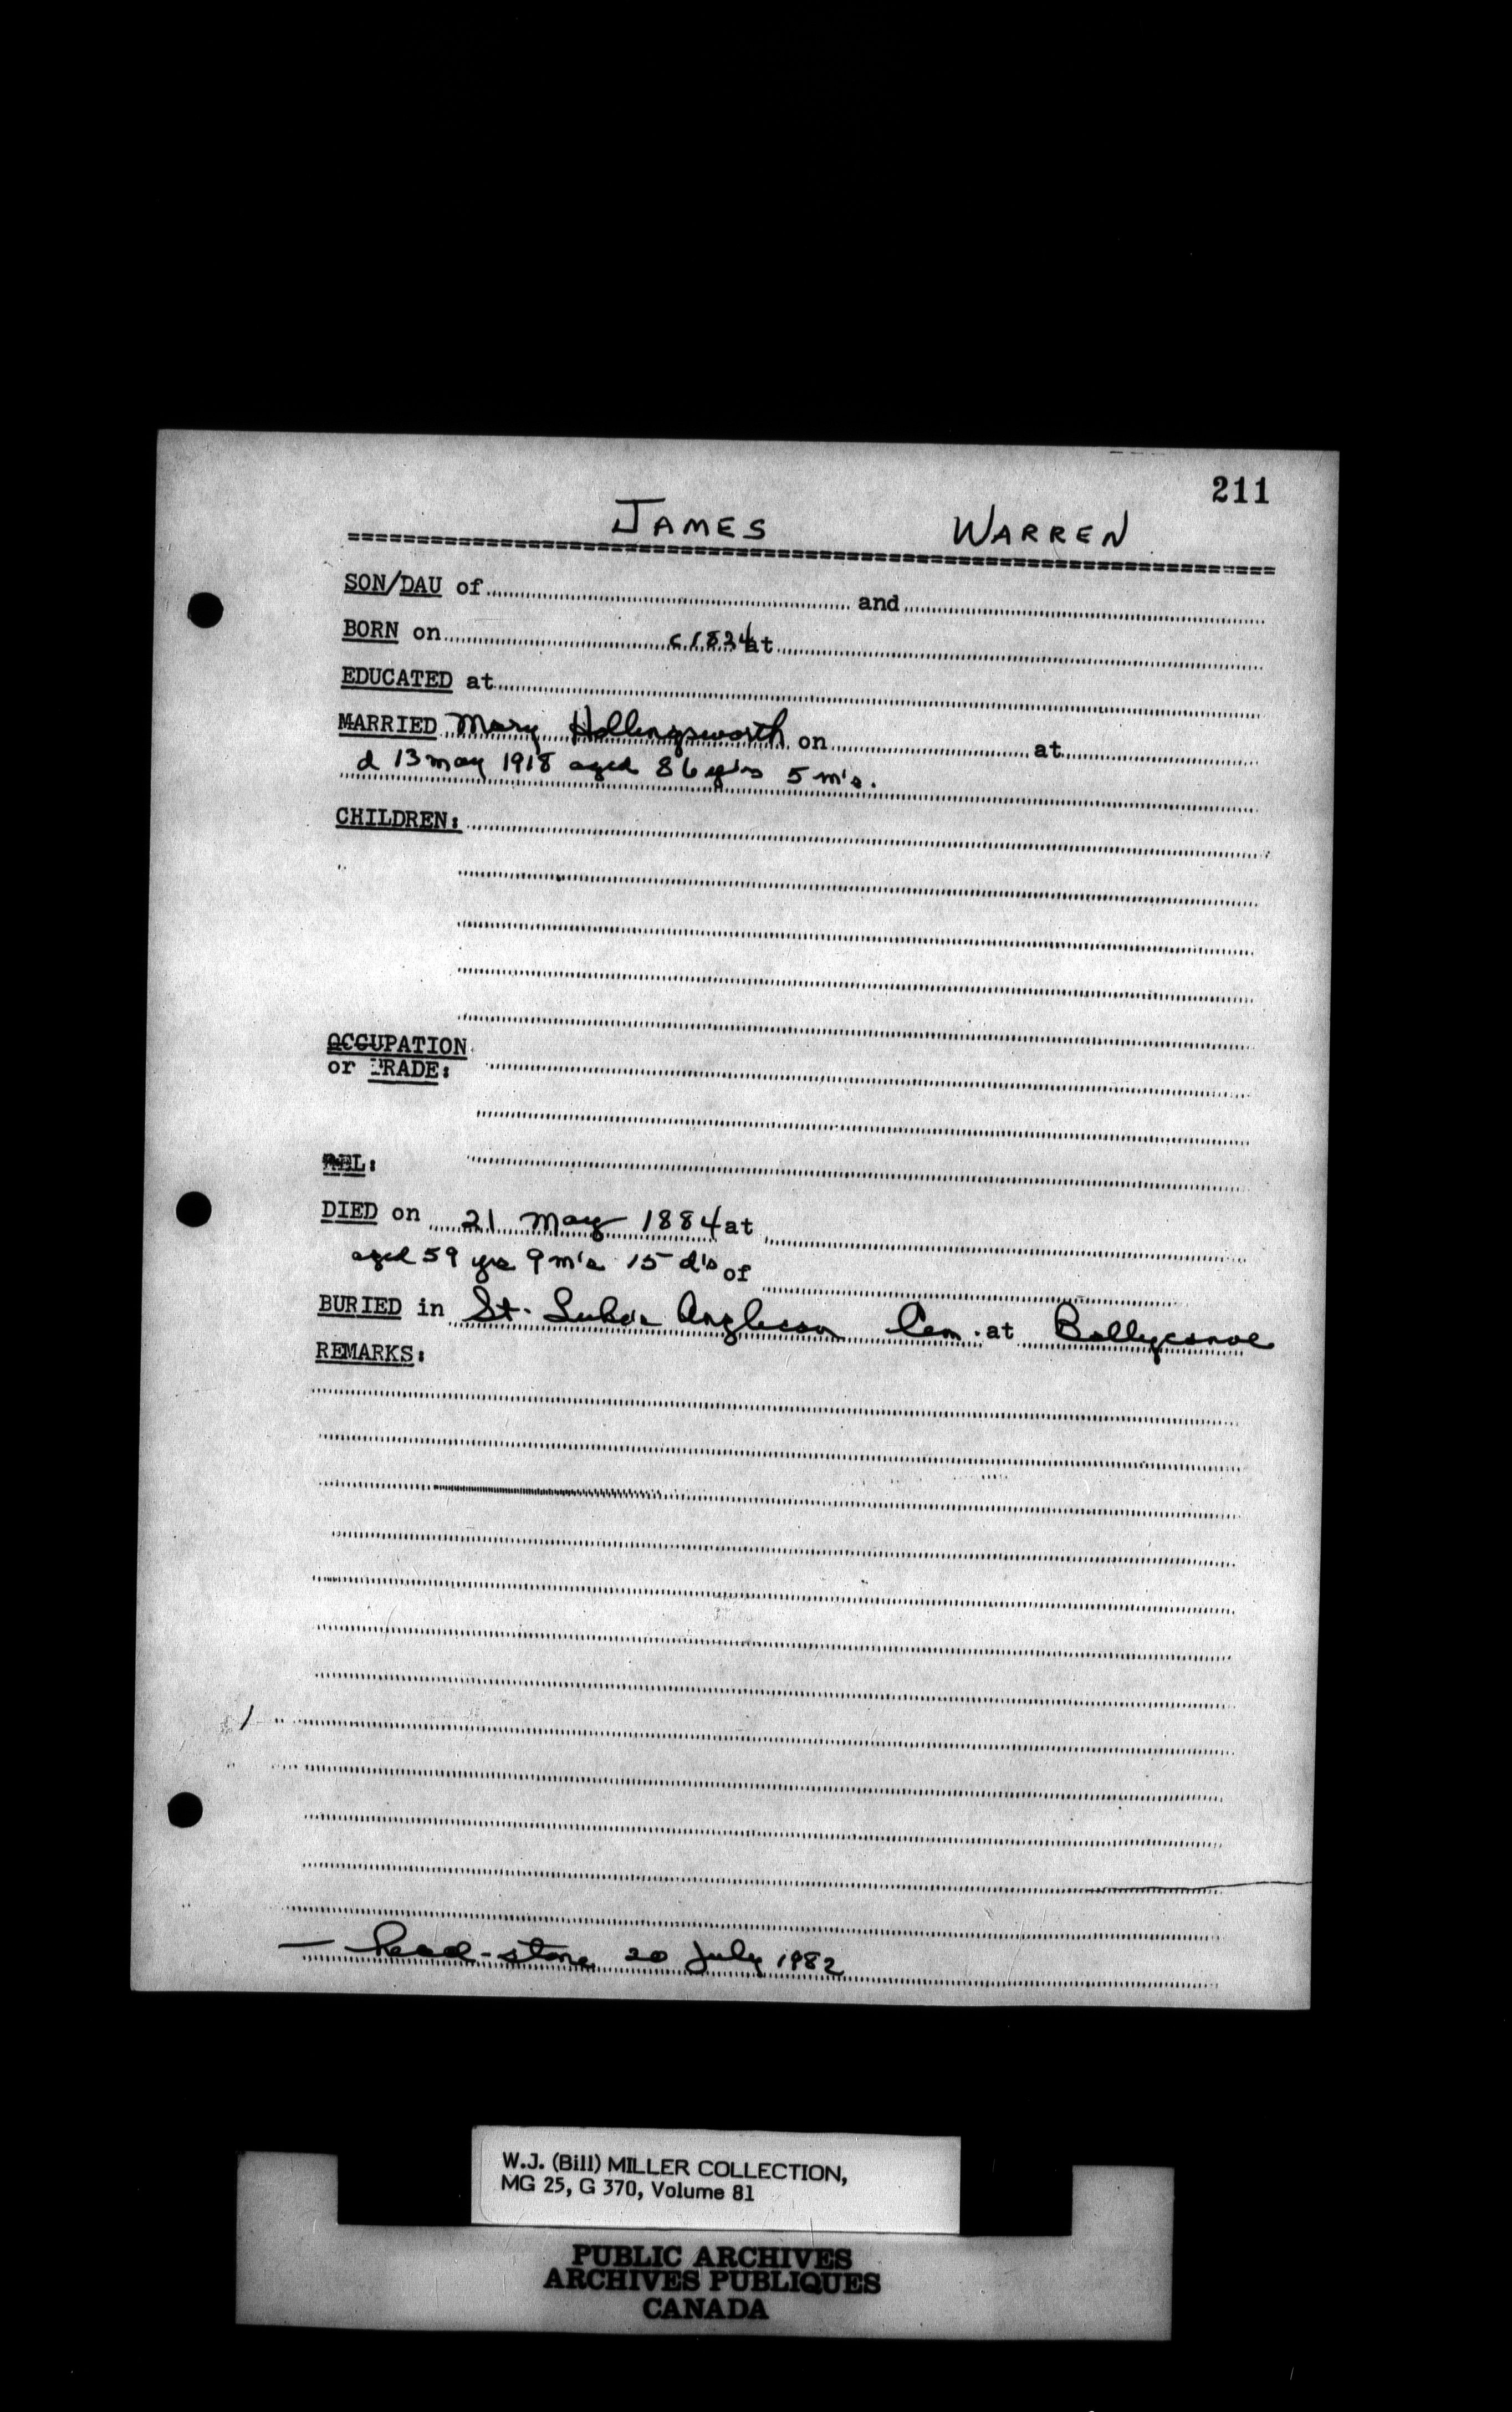 211
JAMES WARREN
SON/DAU of and
BORN on c 1824 at
EDUCATED at
MARRIED Mary Hollingsworth on at
d 13 may 1918 aged 86 y's 5 m's.
CHILDREN:
OCCUPATION
or TRADE:
REL:
DIED on 21 May 1884 at
aged 59 yrs 9 m's 15 d's of
BURIED in St. Luke's Anglican Cem. at Ballycanoe
REMARKS:
— head-stone 20 July 1982
W.J. (Bill) MILLER COLLECTION,
MG 25, G 370, Volume 81
PUBLIC ARCHIVES
ARCHIVES PUBLIQUES
CANADA